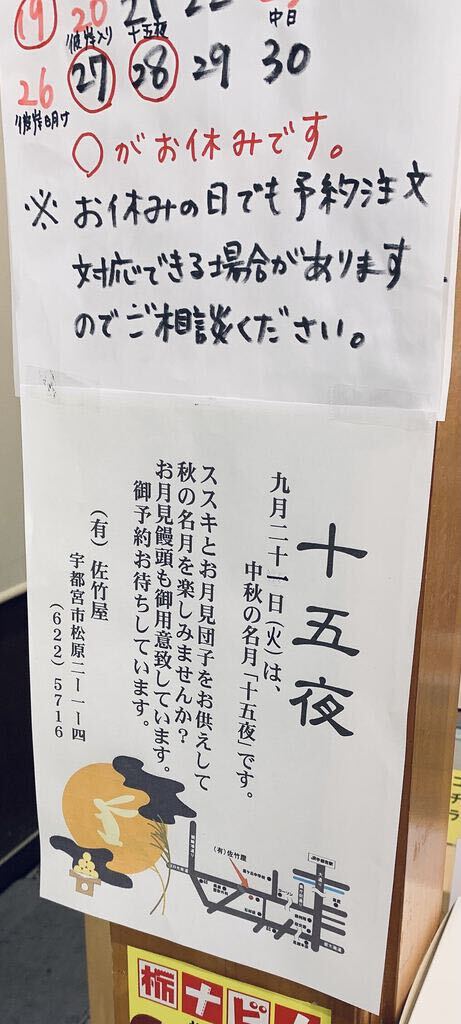 19 20 21 22 23
彼岸入り 十五夜 中日
26 27 28 29 30
彼岸明け
○がお休みです。
※ お休みの日でも予約注文
対応できる場合があります
のでご相談ください。
十五夜
九月二十一日(火)は、
中秋の名月「十五夜」です。
ススキとお月見団子をお供えして
秋の名月を楽しみませんか?
お月見饅頭も御用意致しています。
御予約お待ちしています。
(有)佐竹屋
宇都宮市松原二-一-四
(622)5716
(有)佐竹屋
JR宇都宮駅
栃ナビ!